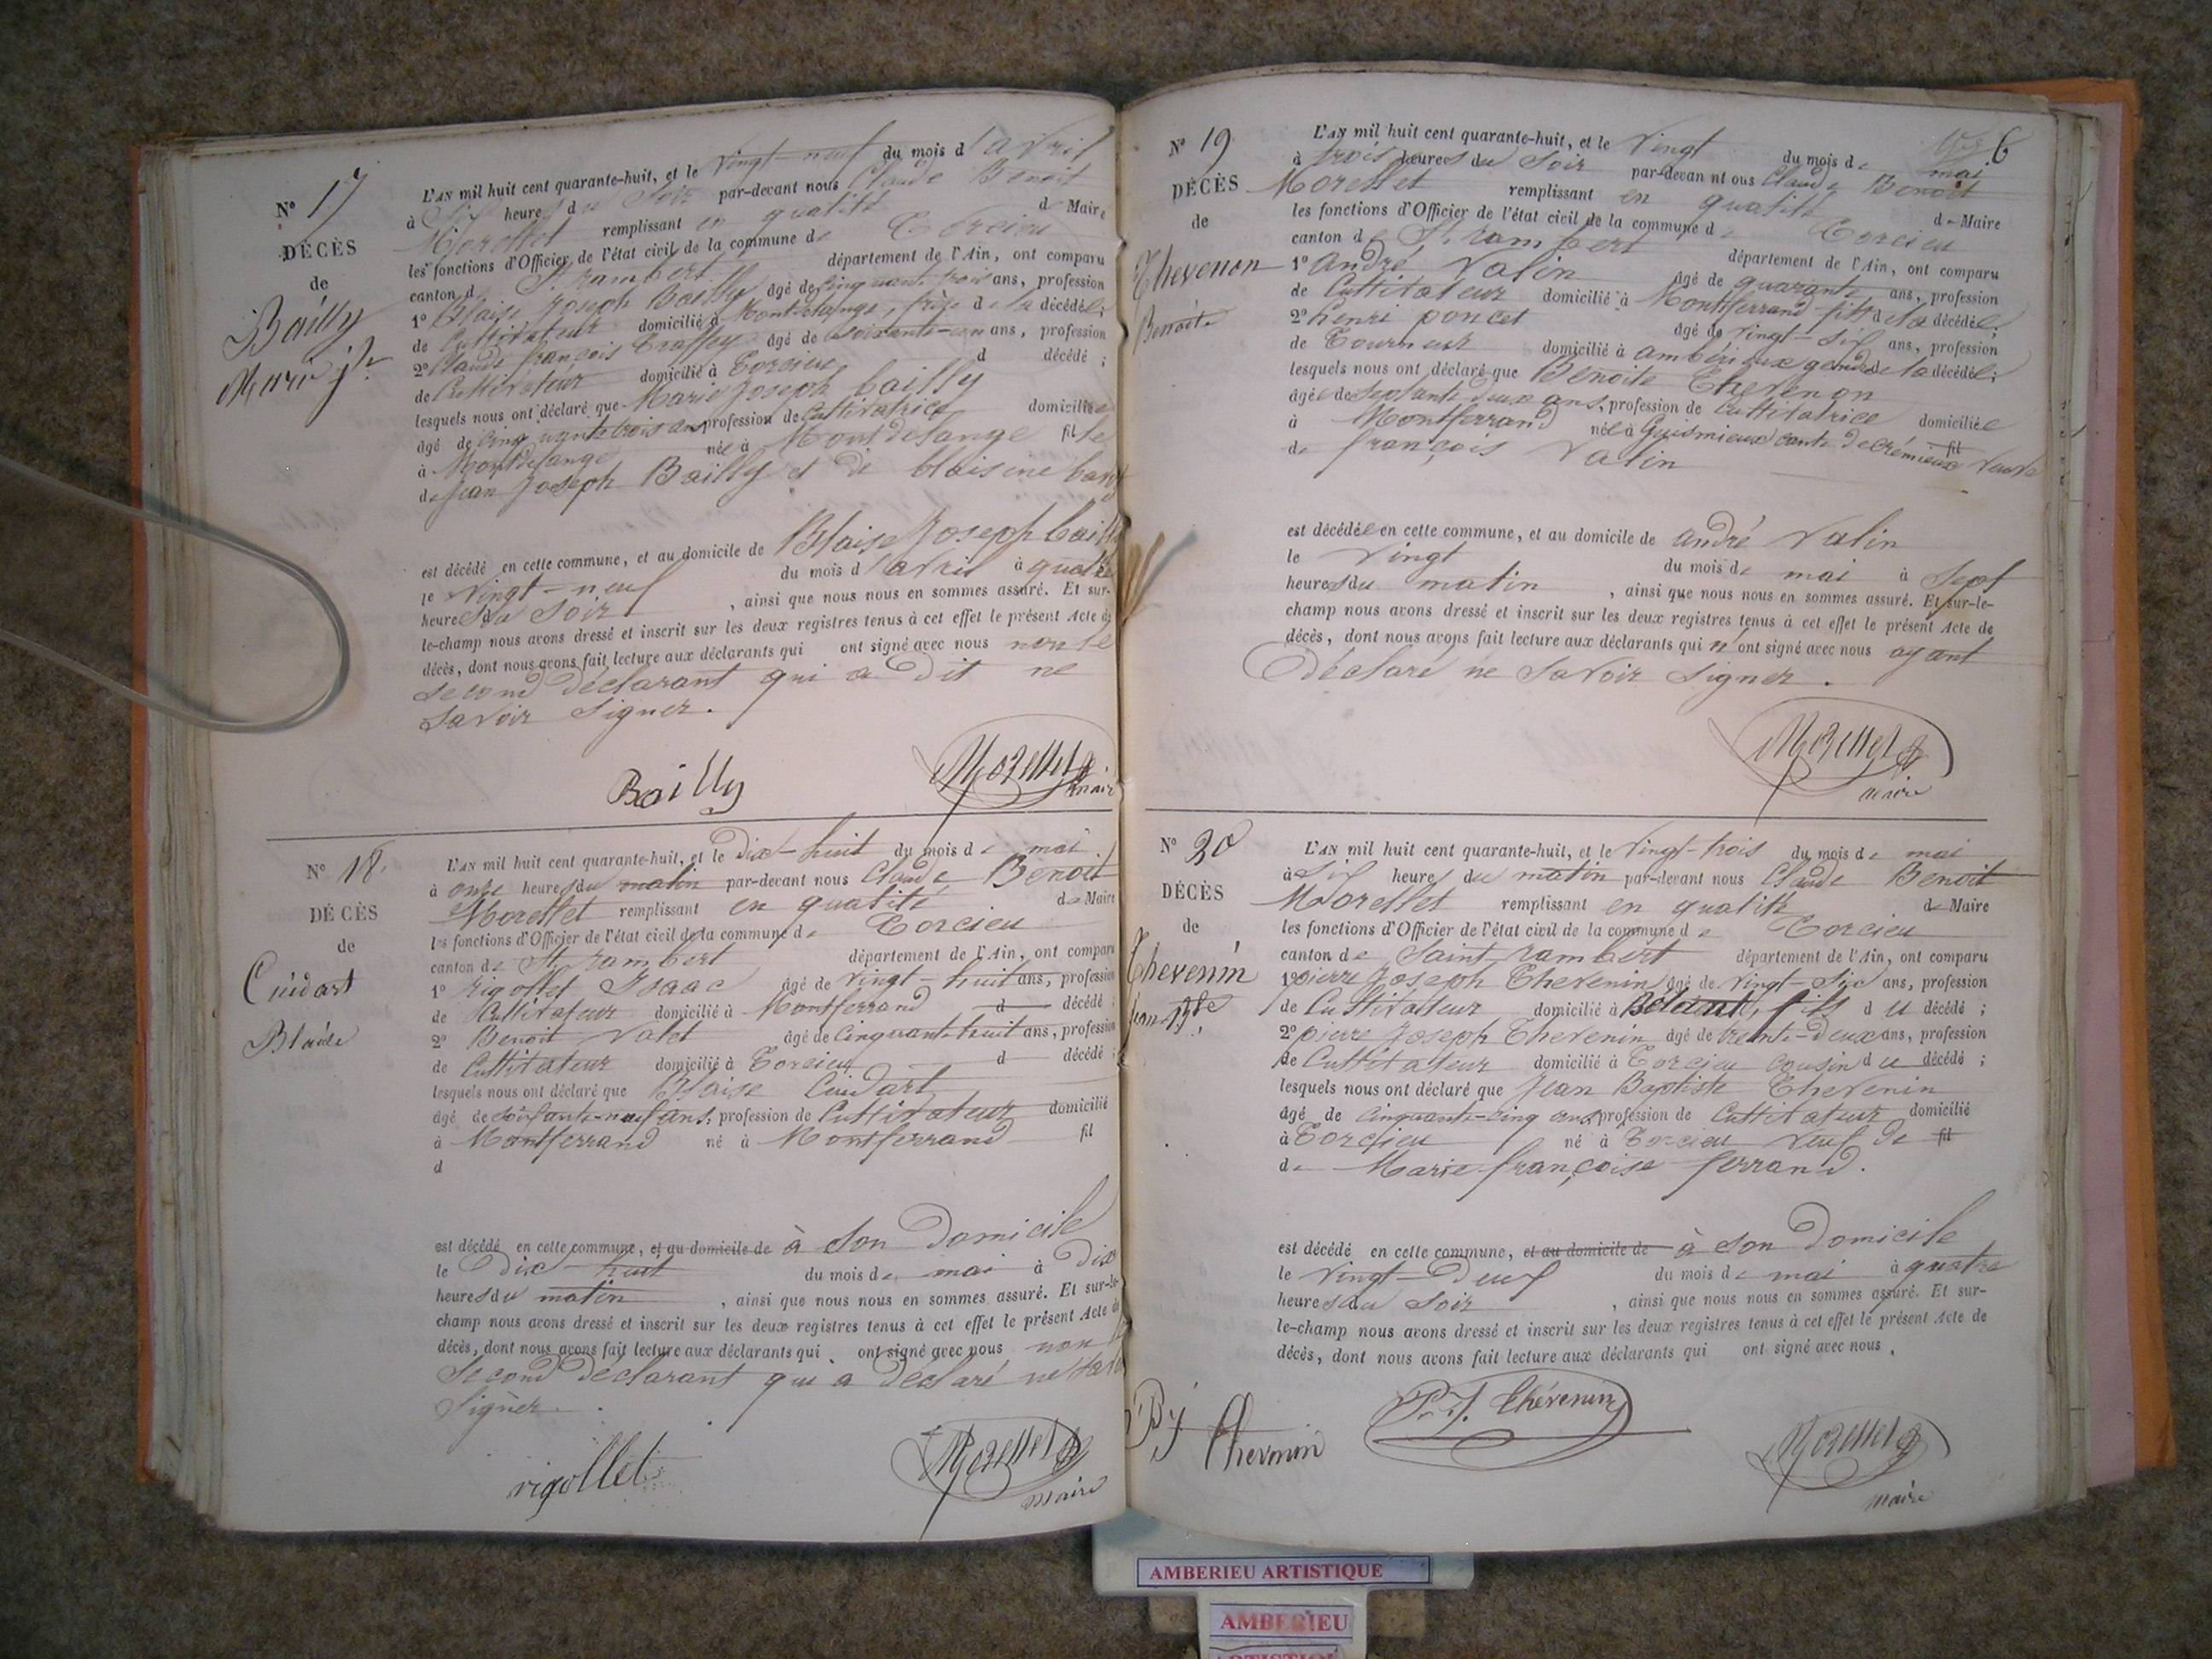 N° 17
DÉCÈS
de
Bailly
Marie jh
L'AN mil huit cent quarante-huit, et le vingt-neuf du mois d'avril
à six heures du soir par-devant nous Claude Benoit
Morellet remplissant en qualité de Maire
les fonctions d'Officier de l'état civil de la commune de Torcieu
canton de St rambert département de l'Ain, ont comparu
1° Blaise Joseph Bailly âgé de cinquante trois ans, profession
de Cultivateur domicilié à Montdelange, frère de la décédée;
2° Claude françois Traffey âgé de soixante-un ans, profession
de Cultivateur domicilié à Torcieu d décédé;
lesquels nous ont déclaré que Marie Joseph bailly
âgé de cinquante trois ans profession de Cultivatrice domiciliée
à Montdelange née à Montdelange fille
de Jean Joseph Bailly et de blaisine
est décédé en cette commune, et au domicile de Blaise Joseph bailly
le vingt-neuf du mois d'avril à quatre
heures du soir, ainsi que nous nous en sommes assuré. Et sur-
le-champ nous avons dressé et inscrit sur les deux registres tenus à cet effet le présent Acte de
décès, dont nous avons fait lecture aux déclarants qui ont signé avec nous non le
second déclarant qui a dit ne
savoir signer.
Bailly Morellet
maire
N° 18.
DÉCÈS
de
Cuidart
Blaise
L'AN mil huit cent quarante-huit, et le Dix-huit du mois de mai
à onze heures du matin par-devant nous Claude Benoit
Morellet remplissant en qualité de Maire
les fonctions d'Officier de l'état civil de la commune de Torcieu
canton de St rambert département de l'Ain, ont comparu
1° rigollet Isaac âgé de vingt-huit ans, profession
de Cultivateur domicilié à Montferrand d décédé;
2° Benoit Valet âgé de cinquante huit ans, profession
de Cultivateur domicilié à Torcieu d décédé;
lesquels nous ont déclaré que Blaise Cuidart
âgé de soixante-neuf ans, profession de Cultivateur domicilié
à Montferrand né à Montferrand fil
d
est décédé en cette commune, et au domicile de à son Domicile
le Dix-huit du mois de mai à Dix
heures du matin, ainsi que nous nous en sommes assuré. Et sur-le-
champ nous avons dressé et inscrit sur les deux registres tenus à cet effet le présent Acte de
décès, dont nous avons fait lecture aux déclarants qui ont signé avec nous non le
second déclarant qui a déclaré ne
signer.
rigollet Morellet
maire
6
N° 19
DÉCÈS
de
Thevenon
Benoite
L'AN mil huit cent quarante-huit, et le vingt du mois de mai
à trois heures du soir par-devan nt ous Claude Benoit
Morellet remplissant en qualité de Maire
les fonctions d'Officier de l'état civil de la commune de Torcieu
canton de St rambert département de l'Ain, ont comparu
1° andré Valin âgé de quarante ans, profession
de Cultivateur domicilié à Montferrand fils de la décédée;
2° henri poncet âgé de vingt-six ans, profession
de Tourneur domicilié à ambérieux gendre de la décédée;
lesquels nous ont déclaré que Benoite Thevenon
âgée de septante deux ans, profession de Cultivatrice domiciliée
à Montferrand née à cant. de crémieux fil veuve
de françois Valin
est décédée en cette commune, et au domicile de andré Valin
le vingt du mois de mai à sept
heures du matin, ainsi que nous nous en sommes assuré. Et sur-le-
champ nous avons dressé et inscrit sur les deux registres tenus à cet effet le présent Acte de
décès, dont nous avons fait lecture aux déclarants qui n'ont signé avec nous ayant
déclaré ne savoir signer.
Morellet
maire
N° 20
DÉCÈS
de
Thevenin
Jean Bte
L'AN mil huit cent quarante-huit, et le vingt-trois du mois de mai
à six heures du matin par-devant nous Claude Benoit
Morellet remplissant en qualité de Maire
les fonctions d'Officier de l'état civil de la commune de Torcieu
canton de Saint-rambert département de l'Ain, ont comparu
1° pierre Joseph Thevenin âgé de vingt-six ans, profession
de Cultivateur domicilié à fils du décédé;
2° pierre Joseph Thevenin âgé de trente-deux ans, profession
de Cultivateur domicilié à Torcieu cousin du décédé;
lesquels nous ont déclaré que Jean Baptiste Thevenin
âgé de cinquante-cinq ans profession de Cultivateur domicilié
à Torcieu né à Torcieu veuf de fil
de Marie françoise ferrand.
est décédé en cette commune, et au domicile de à son Domicile
le vingt-Deux du mois de mai à quatre
heures du soir, ainsi que nous nous en sommes assuré. Et sur-
le-champ nous avons dressé et inscrit sur les deux registres tenus à cet effet le présent Acte de
décès, dont nous avons fait lecture aux déclarants qui ont signé avec nous.
P J Thevenin P. J. Thévenin Morellet
maire
AMBERIEU ARTISTIQUE
AMBERIEU
ARTISTIQUE